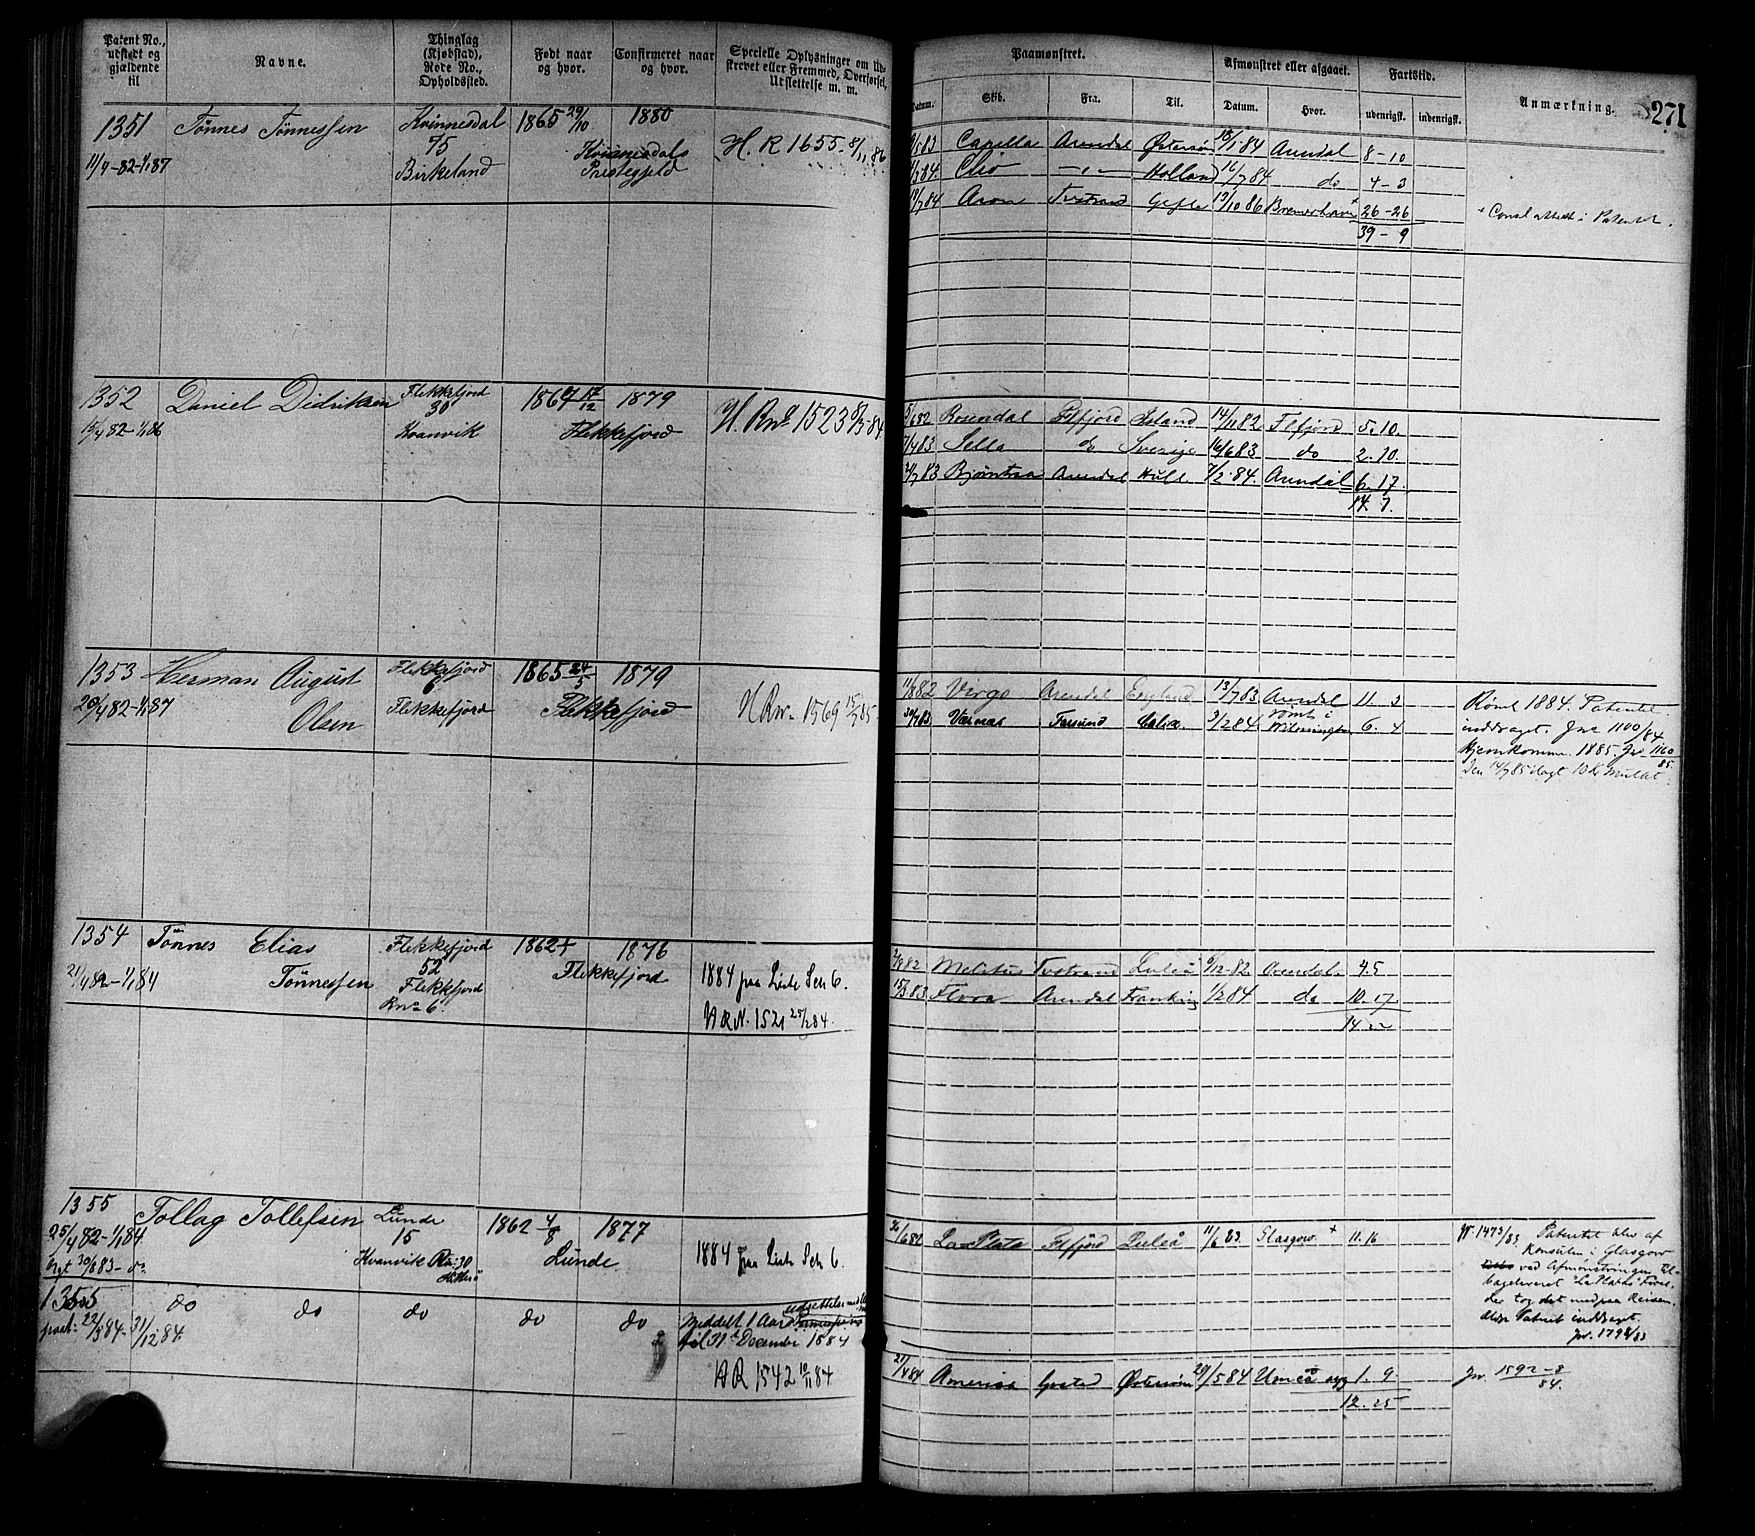 Patent No., udstedt og gjældende til
Navne.
Thinglag (Kjøbstad), Rode No., Opholdssted.
Født naar og hvor.
Confirmeret naar og hvor.
Specielle Oplysninger om Udskrevet eller Fremmed, Overførsel, Udslettelse m. m.
Paamønstret.
Datum. Skib. Fra. Til.
Afmønstret eller afgaaet.
Datum. Hvor.
Fartstid.
udenrigsk. indenrigsk.
Anmærkning.
271
1351 Tønnes Tønnessen Kvinnesdal 1865 29/10 1880
11/4-82-1/1 87 75 Birkeland Kvinnesdals Prestegjeld H. R 1655. 8/11 86
83 Capella Arendal Østersøn 15/1 84 Arendal 8-10
84. Clio -"- Holland 16/7 84 do 4-3
84 Aron Tvestrand Gefle 13/10 86 Bremerhaven + 26-26
39-9
+ Consl attest i Patentet.
1352 Daniel Didriksen Flekkefjord 17/12 1879
15/4 82-1/1 86 30 Kvanvik Flekkefjord H. Rno 1523 8/3 84
5/6 82 Rosendal Flfjord Island 14/11 82 Flfjord 5. 10.
7/4 83 Sella do Sverige 16/6 83 do 2. 10.
83 Arendal Hull 7/2. 84. Arendal 6. 17.
14. 7.
1353 Herman August Olsen Flekkefjord 1865 24/5 1879
20/4 82-1/1 87 6 Flekkefjord Flekkefjord H Rno. 1569 15/7 85
11/8 82 Virgo Arendal England 13/7 83 Arendal 11. 3
30/7 83 Farsund 3/2 84. Rømt i Wilmington 6. 4
Rømt 1884. Patentet inddraget. Jno 1100/84
Hjemkommen 1885. Jno 1160/85.
Den 14/7 85 ilagt 10 Kr Mulkt.
1354 Tønnes Elias Tønnessen Flekkefjord 1862 + 1876
21/4 82-1/1 84 52 Flekkefjord Rno 6. Flekkefjord 1884 fra Liste Sch 6.
H R N. 1521 25/2 84.
82 Tvestrand Luleå 6/12-82 Arendal 4. 5
15/3 83 Flora Arendal 1/2 84 do 10. 17
14. 22
1355 Tollag Tollefsen Lunde 1862 4/8 1877
25/4 82-1/1 84. 15 Kvanvik Rno: 30 Hitterø Lunde 1884 fra Liste Sch 6.
30/6 83
30/6 82 La Plata Flfjord Luleå 11/6 83. Glasgow + 11. 16
Jr. 1473/83 Patentet blev af Konsulen i Glasgow ved Afmønstringen tilbageleveret "La Platas" Fører, der tog det med paa Reisen.
Patent inddraget. Jnr. 1798/83
1355 do do do do do
22/3 84. 31/12 84. Meddelt 1 Aars udsættelse til 31te December 1884
H R 1542 10/11 84
21/4 84 America Grimstad Østersøen 29/5 84 Umeå 1. 9
12. 25
Jnr. 1592-8/84.